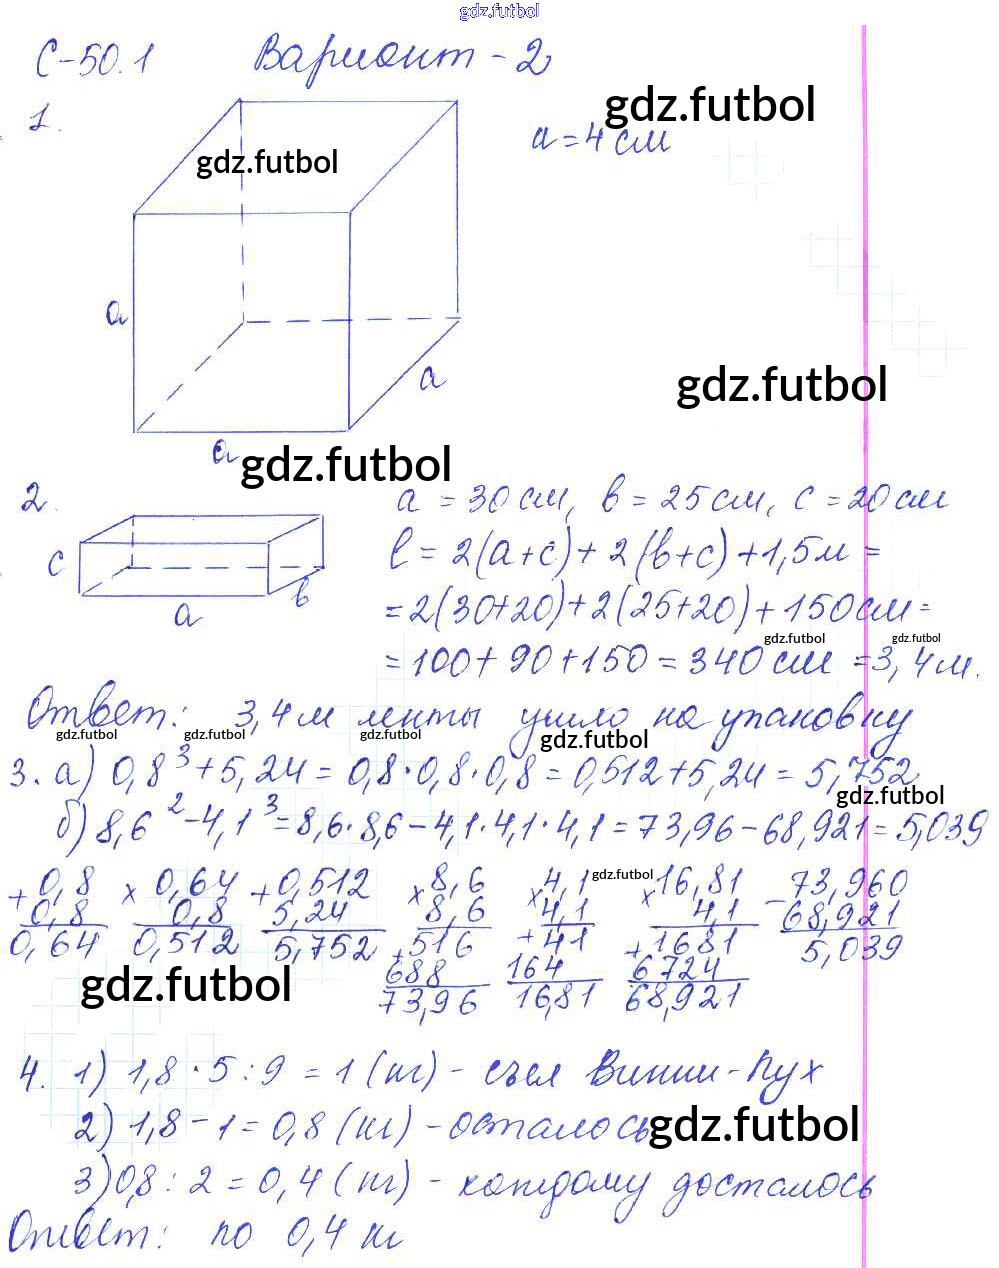 gdz.futbol
С-50.1 Вариант-2
gdz.futbol
1.
a = 4 см
gdz.futbol
a
gdz.futbol
a
a
gdz.futbol
2.
a = 30 см, в = 25 см, с = 20 см
c
ℓ = 2(a+c) + 2(в+c) + 1,5м =
в
a
= 2(30+20) + 2(25+20) + 150см =
gdz.futbol gdz.futbol
= 100 + 90 + 150 = 340 см = 3,4 м.
Ответ: 3,4 м ленты ушло на упаковку
gdz.futbol gdz.futbol gdz.futbol
3. а) 0,8³ + 5,24 = 0,8·0,8·0,8 = 0,512 + 5,24 = 5,752
gdz.futbol
б) 8,6² - 4,1³ = 8,6·8,6 - 4,1·4,1·4,1 = 73,96 - 68,921 = 5,039
gdz.futbol
+ 0,8 × 0,64 + 0,512 × 8,6 × 4,1 × 16,81 - 73,960
0,8 0,8 5,24 8,6 4,1 4,1 68,921
0,64 0,512 5,752 + 516 + 41 + 1681 5,039
688 164 6724
73,96 16,81 68,921
gdz.futbol
4. 1) 1,8 · 5 : 9 = 1 (кг) - съел Винни-Пух
2) 1,8 - 1 = 0,8 (кг) - осталось
gdz.futbol
3) 0,8 : 2 = 0,4 (кг) - каждому досталось
Ответ: по 0,4 кг